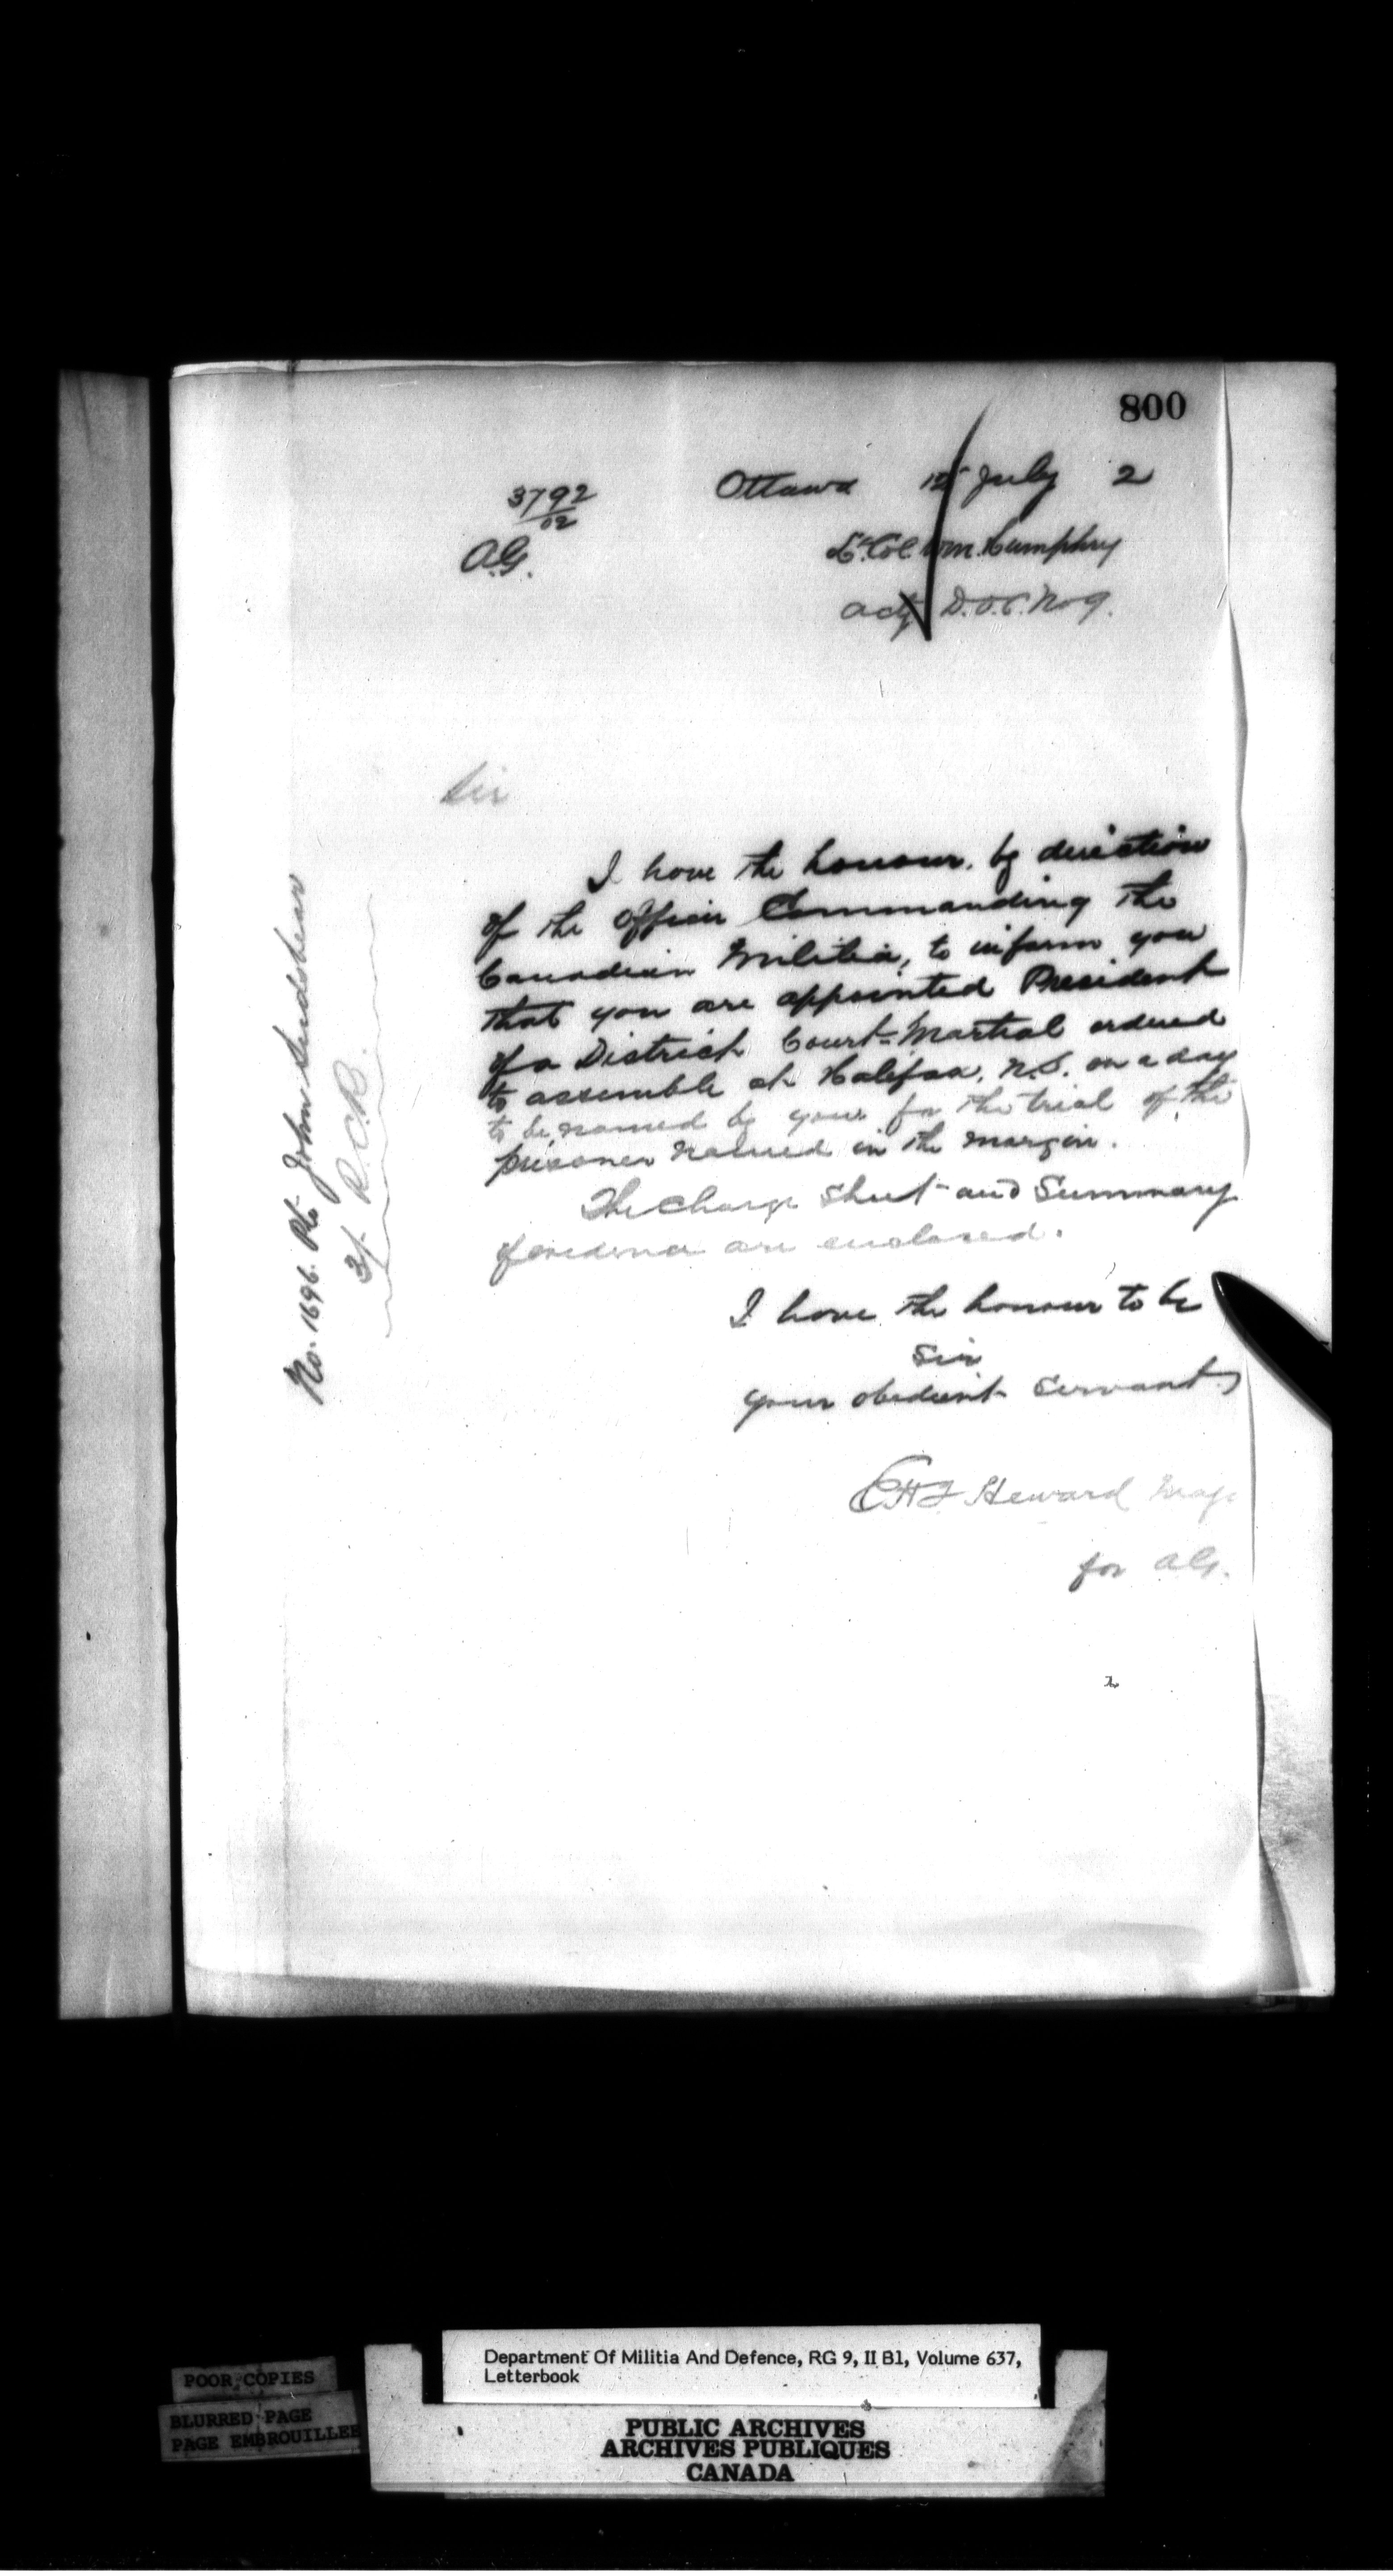 800
3792/02
A.G.
Ottawa 15 July 2
Lt. Col. Wm. Humphrey
actg D.O.C. No 9.
Sir
I have the honour, by direction
of the Officer Commanding the
Canadian Militia, to inform you
that you are appointed President
of a District Court-Martial ordered
to assemble at Halifax, N.S. on a day
to be named by you for the trial of the
prisoner named in the margin.
The Charge Sheet and Summary
of evidence are enclosed.
I have the honour to be
Sir
your obedient Servant
Heward Maj
for A.G.
No. 1696. Pte. John
3/ R.C.R.
POOR COPIES
BLURRED PAGE
PAGE EMBROUILLEE
Department Of Militia And Defence, RG 9, II B1, Volume 637,
Letterbook
PUBLIC ARCHIVES
ARCHIVES PUBLIQUES
CANADA